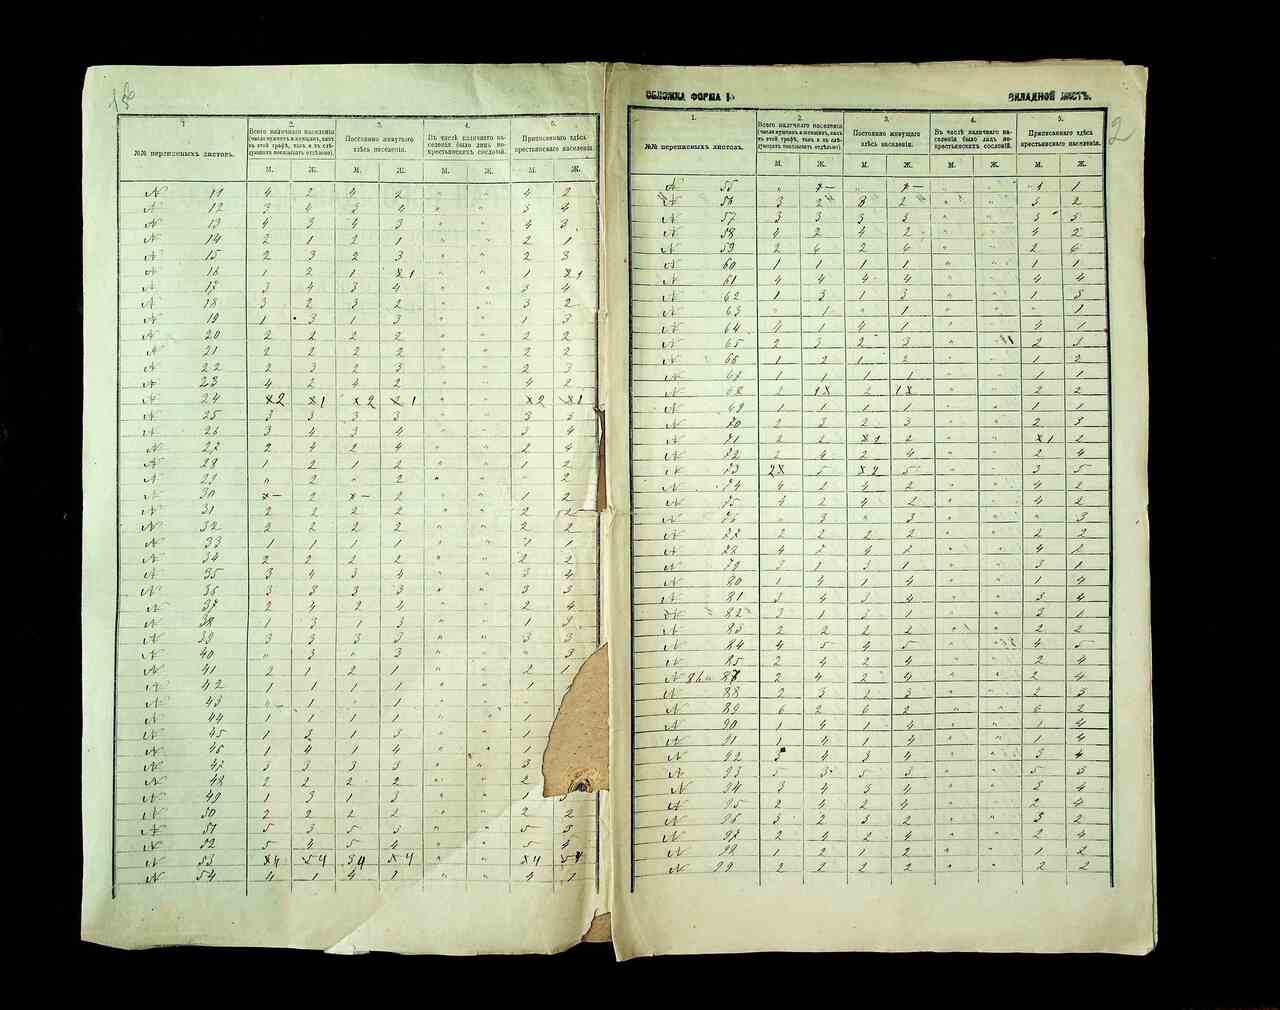 1.
2.
3.
4.
5.
№№ переписныхъ листовъ.
Всего наличнаго населенія
(число мужчинъ и женщинъ, какъ
въ этой графѣ, такъ и въ слѣ-
дующихъ показывать отдѣльно).
Постоянно живущаго
здѣсь населенія.
Въ числѣ наличнаго на-
селенія было лицъ не-
крестьянскихъ сословій.
Приписаннаго здѣсь
крестьянскаго населенія.
М. Ж. М. Ж. М. Ж.
N 11 4 2 4 2 " " 4 2
N 12 3 4 3 4 " " 3 4
N 13 4 3 4 3 " " 4 3
N 14 2 1 2 1 " " 2 1
N 15 2 3 2 3 " " 2 3
N 16 1 2 1 1 " " 1 1
N 17 3 4 3 4 " " 3 4
N 18 3 2 3 2 " " 3 2
N 19 1 3 1 3 " " 1 3
N 20 2 2 2 2 " " 2 2
N 21 2 2 2 2 " " 2 2
N 22 2 3 2 3 " " 2 3
N 23 4 2 4 2 " " 4 2
N 24 2 1 2 1 " " 2 1
N 25 3 3 3 3 " " 3 3
N 26 3 4 3 4 " " 3 4
N 27 2 4 2 4 " " 2 4
N 28 1 2 1 2 " " 1 2
N 29 " 2 " 2 " " 2
N 30 – 2 – 2 " " 1 2
N 31 2 2 2 2 " " 2 2
N 32 2 2 2 2 " " 2 2
N 33 1 1 1 1 " " 1 1
N 34 2 2 2 2 " " 2 2
N 35 3 4 3 4 " " 3 4
N 36 3 3 3 3 " " 3 3
N 37 2 4 2 4 " " 2 4
N 38 1 3 1 3 " " 1 3
N 39 3 3 3 3 " " 3 3
N 40 " 3 " 3 " " " 3
N 41 2 1 2 1 " " 2 1
N 42 1 1 1 1 " " 1
N 43 " 1 " 1 " "
N 44 1 1 1 1 " " 1
N 45 1 2 1 3 " " 1
N 46 1 4 1 4 " " 1
N 47 3 3 3 3 " " 3
N 48 2 2 2 2 " " 2
N 49 1 3 1 3 " " 1 3
N 50 2 2 2 2 " " 2 2
N 51 5 3 5 3 " " 5 3
N 52 5 4 5 4 " " 5 4
N 53 4 4 4 4 " " 4 4
N 54 4 1 4 1 " " 4 1
ОБЛОЖКА ФОРМА
ВКЛАДНОЙ ЛИСТЪ.
2
1.
2.
3.
4.
5.
№№ переписныхъ листовъ.
Всего наличнаго населенія
(число мужчинъ и женщинъ, какъ
въ этой графѣ, такъ и въ слѣ-
дующихъ показывать отдѣльно)
Постоянно живущаго
здѣсь населенія.
Въ числѣ наличнаго на-
селенія было лицъ не-
крестьянскихъ сословій.
Приписаннаго здѣсь
крестьянскаго населенія.
М. Ж. М. Ж. М. Ж. М. Ж.
N 55 " – " – " " 1 1
N 56 3 2 3 2 " " 3 2
N 57 3 3 3 3 " " 3 3
N 58 4 2 4 2 " " 4 2
N 59 2 4 2 4 " " 2 4
N 60 1 1 1 1 " " 1 1
N 61 4 4 4 4 " " 4 4
N 62 1 3 1 3 " " 1 3
N 63 " 1 " 1 " " 1
N 64 4 1 4 1 " " 4 1
N 65 2 3 2 3 " 2 3
N 66 1 2 1 2 " " 1 2
N 67 1 1 1 1 " " 1 1
N 68 2 1 2 1 " " 2 2
N 69 1 1 1 1 " " 1 1
N 70 2 3 2 3 " " 2 3
N 71 2 2 1 2 " " 1 2
N 72 2 4 2 4 " " 2 4
N 73 2 5 2 5 " " 3 5
N 74 4 2 4 2 " " 4 2
N 75 4 2 4 2 " " 4 2
N 76 " 3 " 3 " " " 3
N 77 2 2 2 2 " " 2 2
N 78 4 2 4 2 " " 4 2
N 79 3 1 3 1 " " 3 1
N 80 1 4 1 4 " " 1 4
N 81 3 4 3 4 " " 3 4
N 82 3 1 3 1 " " 3 1
N 83 2 2 2 2 " " 2 2
N 84 4 5 4 5 " 4 5
N 85 2 4 2 4 " " 2 4
N 86 и 87 2 4 2 4 " " 2 4
N 88 2 3 2 3 " " 2 3
N 89 6 2 6 2 " " 6 2
N 90 1 4 1 4 " " 1 4
N 91 1 4 1 4 " " 1 4
N 92 3 4 3 4 " " 3 4
N 93 5 3 5 3 " " 5 3
N 94 3 4 3 4 " " 3 4
N 95 2 4 2 4 " " 2 4
N 96 3 2 3 2 " " 3 2
N 97 2 4 2 4 " " 2 4
N 98 1 2 1 2 " " 1 2
N 99 2 2 2 2 " " 2 2